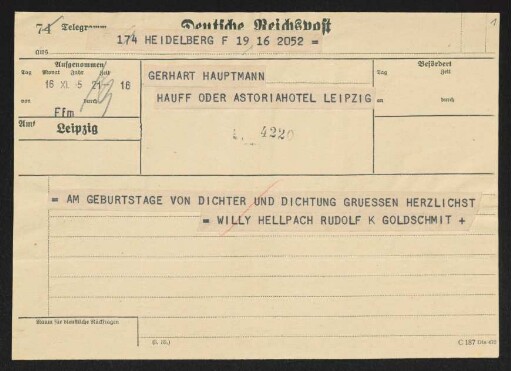 74 Telegramm Deutsche Reichspost 1
174 HEIDELBERG F 19 16 2052 =
aus
Aufgenommen
Tag Monat Jahr Zeit
16 XI. 5 21 18
von durch
Ffm
Amt Leipzig
GERHART HAUPTMANN
HAUFF ODER ASTORIAHOTEL LEIPZIG
4220
Befördert
Tag Zeit
an durch
= AM GEBURTSTAGE VON DICHTER UND DICHTUNG GRUESSEN HERZLICHST
= WILLY HELLPACH RUDOLF K GOLDSCHMIT +
Raum für dienstliche Rückfragen
C 187 Din 476